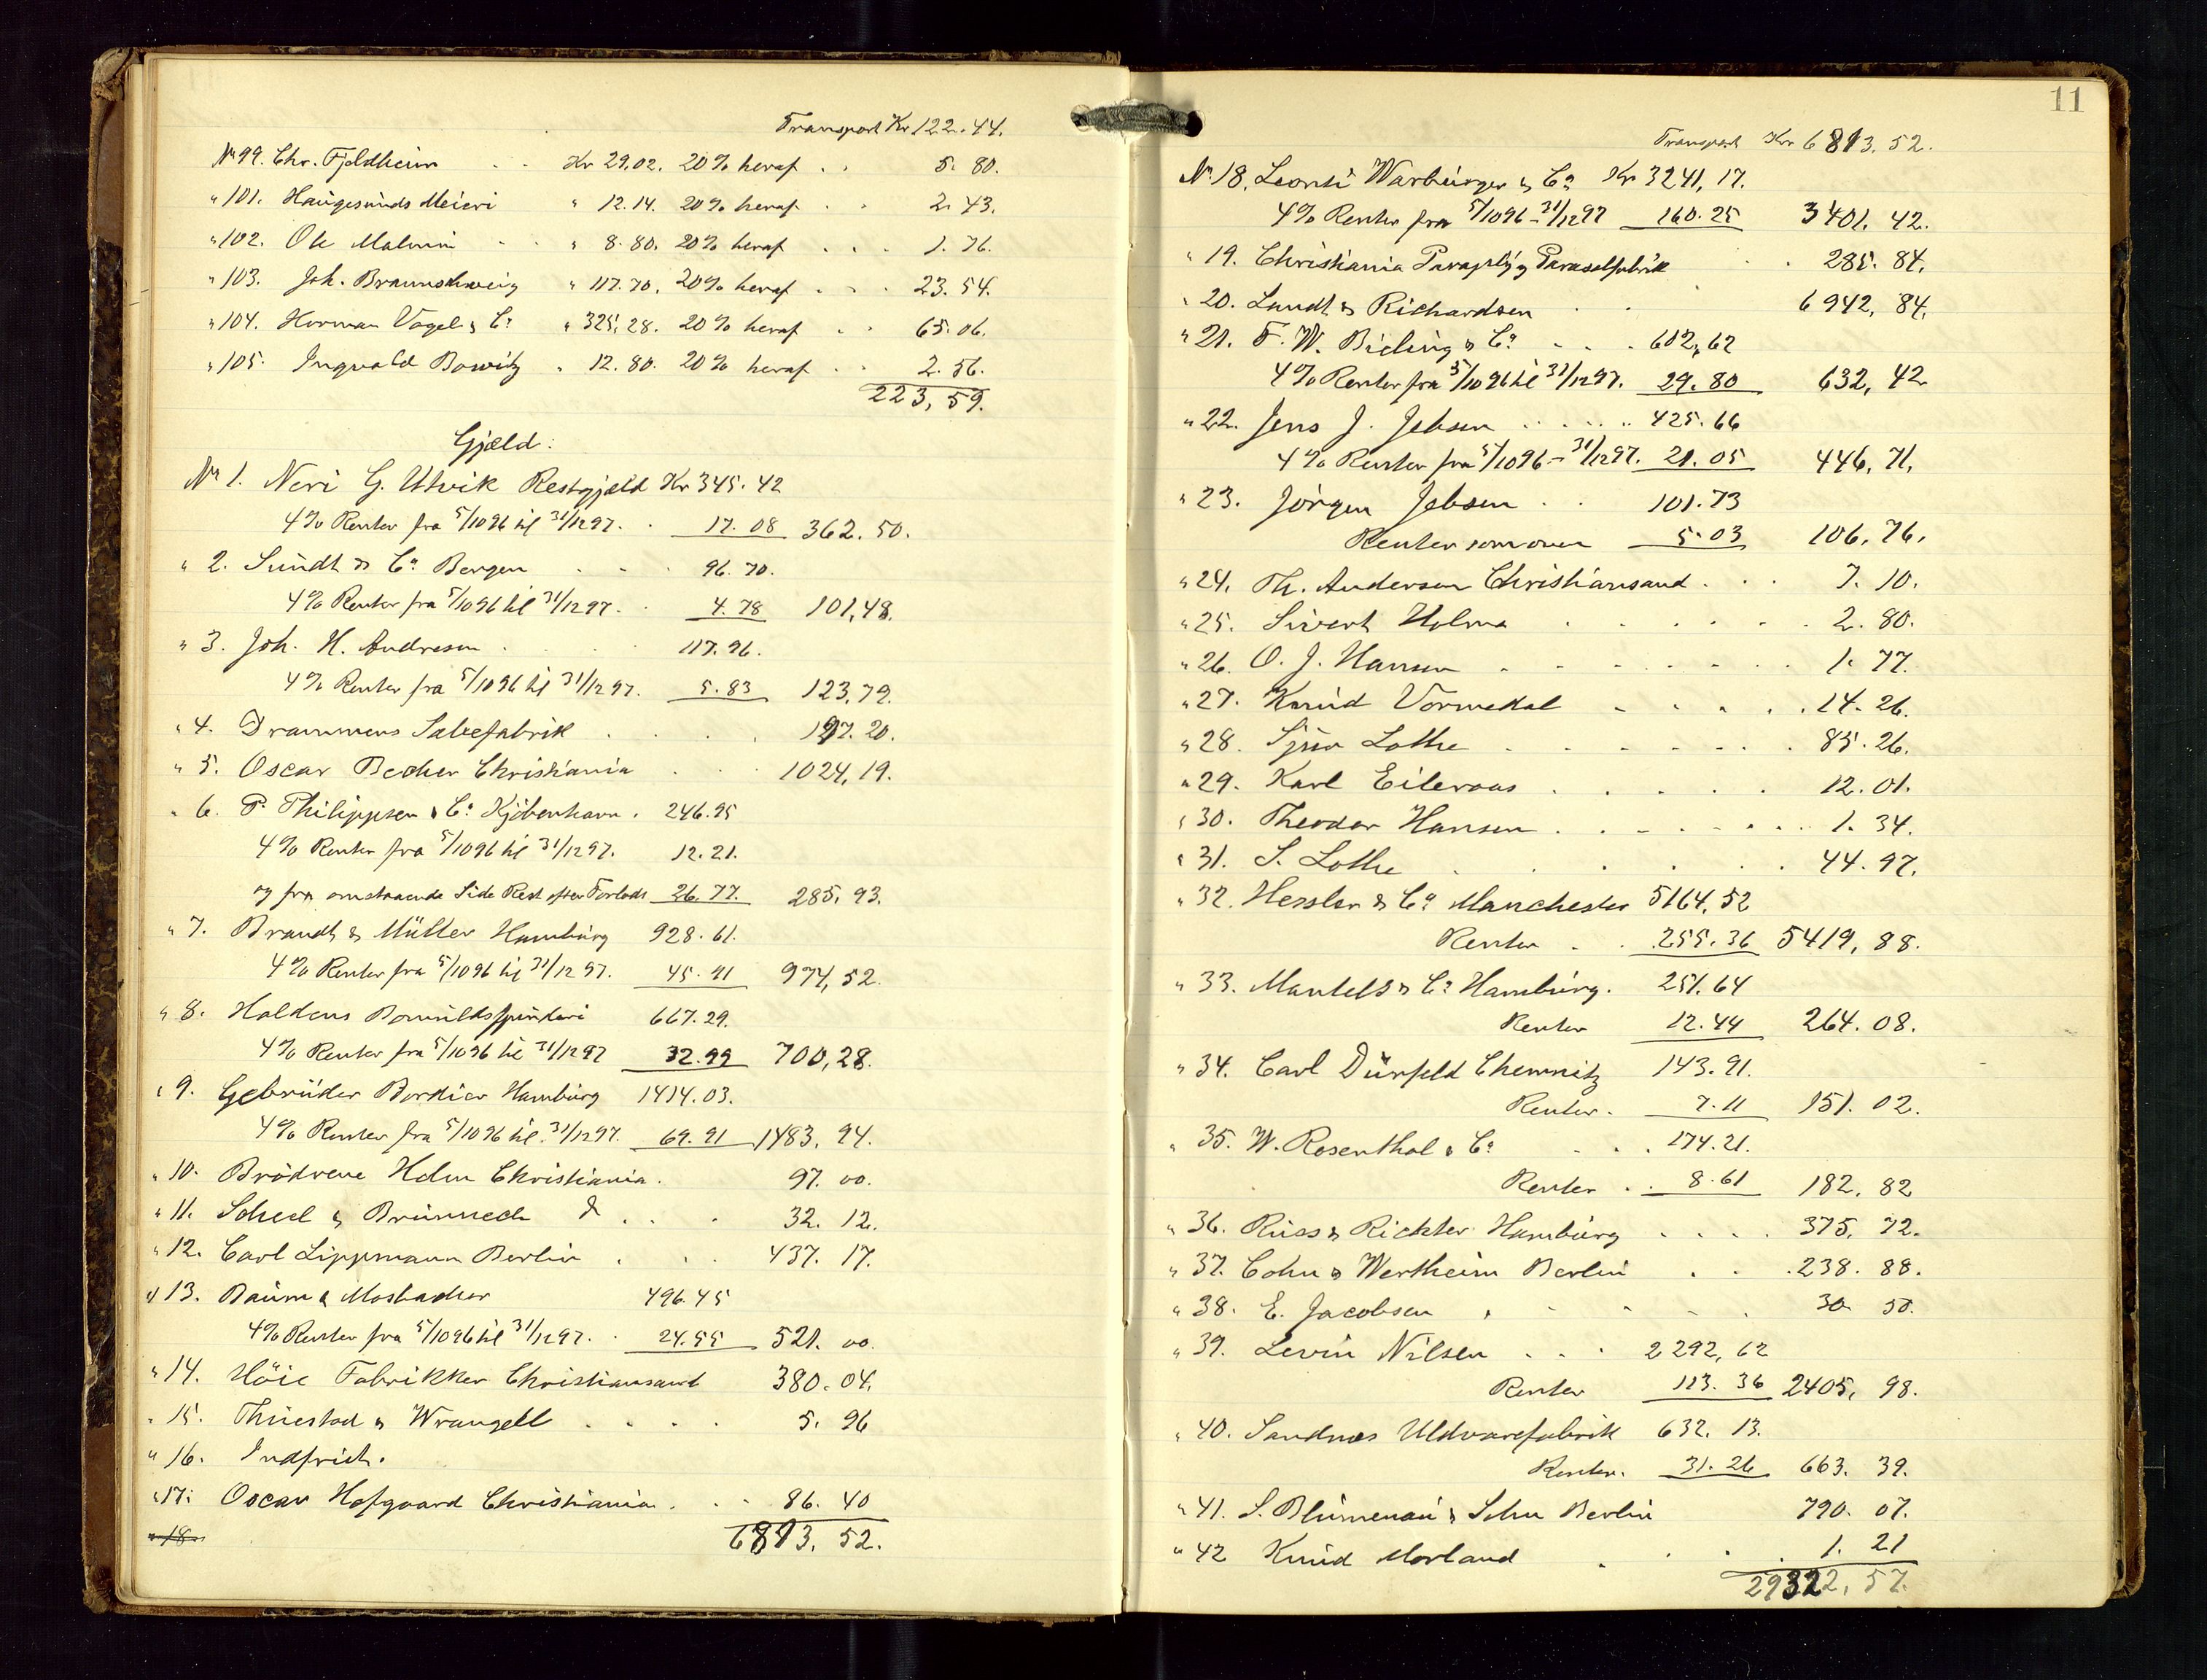 Transport Kr 122.44.
No 99. Chr. Fjeldheim Kr 29.02. 20% heraf 5. 80.
" 101. Haugesunds Meieri " 12.14. 20% heraf 2. 43.
" 102. Ole Malmin " 8.80. 20% heraf 1. 76.
" 103. Joh. Braunschweig " 117.70. 20% heraf 23. 54.
" 104. Herman Vogel & Co " 325.28. 20% heraf 65. 06.
" 105. Ingvald Bowitz " 12.80. 20% heraf 2. 56.
223, 59.
Gjæld:
No 1. Neri G. Utvik Restgjæld Kr 345. 42
4% Renter fra 5/10 96 til 31/12 97. 17. 08 362. 50.
" 2. Sundt & Co Bergen 96. 70.
4% Renter fra 5/10 96 til 31/12 97. 4. 78 101, 48.
" 3. Joh. H. Andresen 117. 96.
4% Renter fra 5/10 96 til 31/12 97. 5. 83 123, 79.
" 4. Drammens Salvefabrik 197. 20.
" 5. Oscar Becher Christiania 1024, 19.
" 6. P. Philippsen & Co Kjöbenhavn. 246. 95
4% Renter fra 5/10 96 til 31/12 97. 12. 21.
og fra omstaaende Side Rest efter Forlods 26. 77. 285. 93.
" 7. Brandt & Mütter Hamburg 928. 61.
4% Renter fra 5/10 96 til 31/12 97. 45. 91 974, 52.
" 8. Haldens Bomuldsspinderi 667. 29.
4% Renter fra 5/10 96 til 31/12 97 32. 99 700, 28.
" 9. Gebrüder Bordier Hamburg 1414. 03.
4% Renter fra 5/10 96 til 31/12 97. 69. 91 1483. 94.
" 10. Brödrene Holm Christiania. 97. 00.
" 11. Scheel & Brünnech 32. 12.
" 12. Carl Lippmann Berlin 437. 17.
" 13. Baum & Mosbacher 496. 45
4% Renter fra 5/10 96 til 31/12 97. 24. 55 521. 00.
" 14. Höie Fabrikker Christiansand 380. 04.
" 15. Thuestad & Wrangell 5. 96
" 16. Indfriet.
" 17. Oscar Hofgaard Christiania 86. 40
" 18
6813. 52.
11
Transport Kr 6813. 52.
No 18. Leonti Warburger & Co Kr 3241, 17.
4% Renter fra 5/10 96 - 31/12 97 160. 25 3401. 42.
" 19. Christiania Paraply og Parasolfabrik 285. 84.
" 20. Lundt & Richardsen 6942, 84.
" 21. F. W. Bieling & Co 602, 62
4% Renter fra 5/10 96 til 31/12 97. 29. 80 632, 42
" 22. Jens J. Jebsen 425. 66
4% Renter fra 5/10 96 - 31/12 97. 21. 05 446, 71.
" 23. Jörgen Jebsen 101. 73
Renter som oven 5. 03 106. 76.
" 24. Th. Andersen Christiansand. 7. 10.
" 25. Sivert Holma 2. 80.
" 26. O. J. Hansen 1. 77.
" 27. Knud Vormedal 14. 26.
" 28. Sjur Lothe 85. 26.
" 29. Karl Eileraas 12. 01.
" 30. Theodor Hansen 1. 34.
" 31. S. Lothe 44. 97.
" 32. Hessler & Co Manchester 5164, 52
Renter 255. 36 5419, 88.
" 33. Mantels & Co Hamburg. 251. 64
Renter 12. 44 264. 08.
" 34. Carl Dürfeld Chemnitz 143. 91.
Renter. 7. 11 151. 02.
" 35. W. Rosenthal & Co 174. 21.
Renter 8. 61 182. 82
" 36. Russ & Richter Hamburg 375. 72.
" 37. Cohn & Wertheim Berlin 238. 88.
" 38. E. Jacobsen 30. 50.
" 39. Levin Nilsen 2292, 62
Renter 113. 36 2405, 98.
" 40. Sandnæs Uldvarefabrik 632. 13.
Renter. 31. 26 663. 39.
" 41. S. Blumenau & Sohn Berlin 790. 07.
" 42 Knud Morland 1. 21
29322, 57.